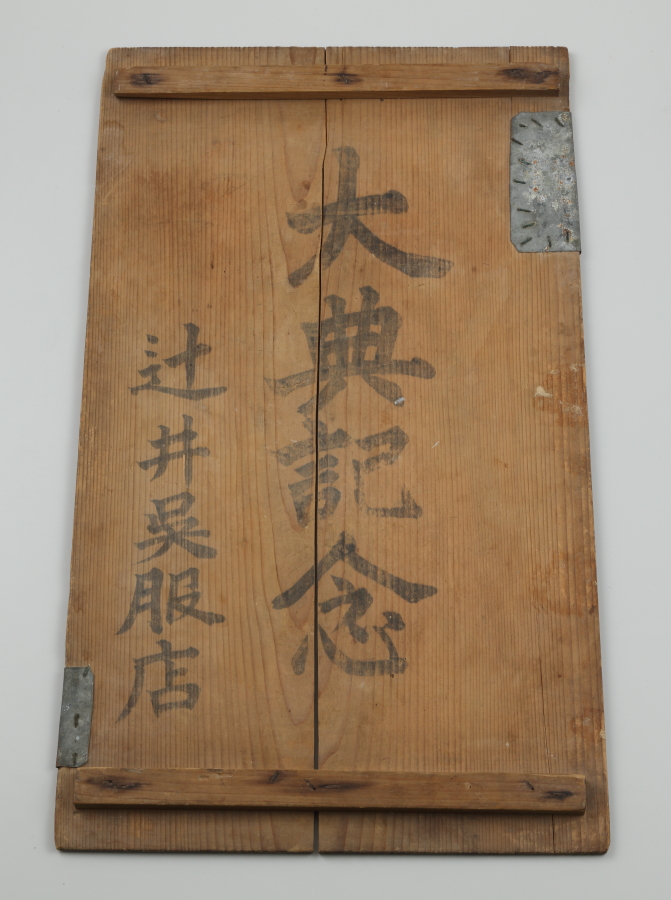 大典記念
辻井呉服店